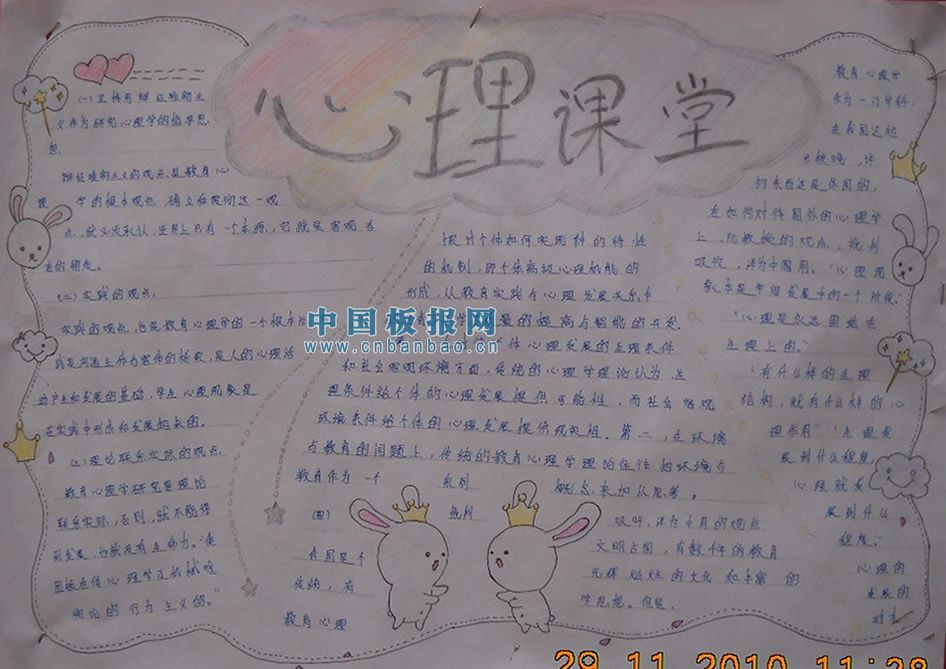 心理课堂
(一)坚持用辩证唯物主
义作为研究心理学的指导思
想
辩证唯物主义的观点,是教育心
理学的根本观点,确立和贯彻这一观
点,就必须承认,世界上只有一个本源,它就是客观存
在的物质。
(二)实践的观点,
实践的观点,也是教育心理学的一个根本
践是沟通主体与客体的桥梁,是人的心理活
动产生和发展的基础,学生心理现象是
在实践中形成和发展起来的。
(三)理论联系实际的观点,
教育心理学研究要理论
联系实际,否则,就不能得
到发展,也就没有生命力。
心理学及机械唯
物论的行为主义的。”
探讨个体如何实现种的特性
的机制,即个体高级心理机能的
形成,从教育实践与心理发展关系中
量的提高与智能的开发
体心理发展的生理条件
和社会客观环境方面,传统的心理学理论认为生
理条件给个体的心理发展提供可能性,而社会客观
环境条件给个体的心理发展提供现实性。第二,在环境
与教育的问题上,传统的教育心理学理论往往把环境与
教育作为一个系列概念,来加以思考。
(四)
我国是个
传统,有
教育心理
吸收,洋为中用的观点
文明古国,有数千年的教育
光辉灿烂的文化和丰富的
学思想。但是,
教育心理学
作为一门学科
在我国还起
步较晚,许
多东西还是外国的,
在如何对待国外的心理学
上,应教授的观点:批判
吸收,洋为中用。“心理现
象本是年组发展中的一个阶段:
“心理是永远固着在
生理上的。”
“有什么样的生理
结构,就有什么样的心
理作用”“生理发
展到什么程度,
心理就发
展到什么
程度;
心理的
发展的
中国板报网
www.cnbanbao.cn
29 11 2010 11:28